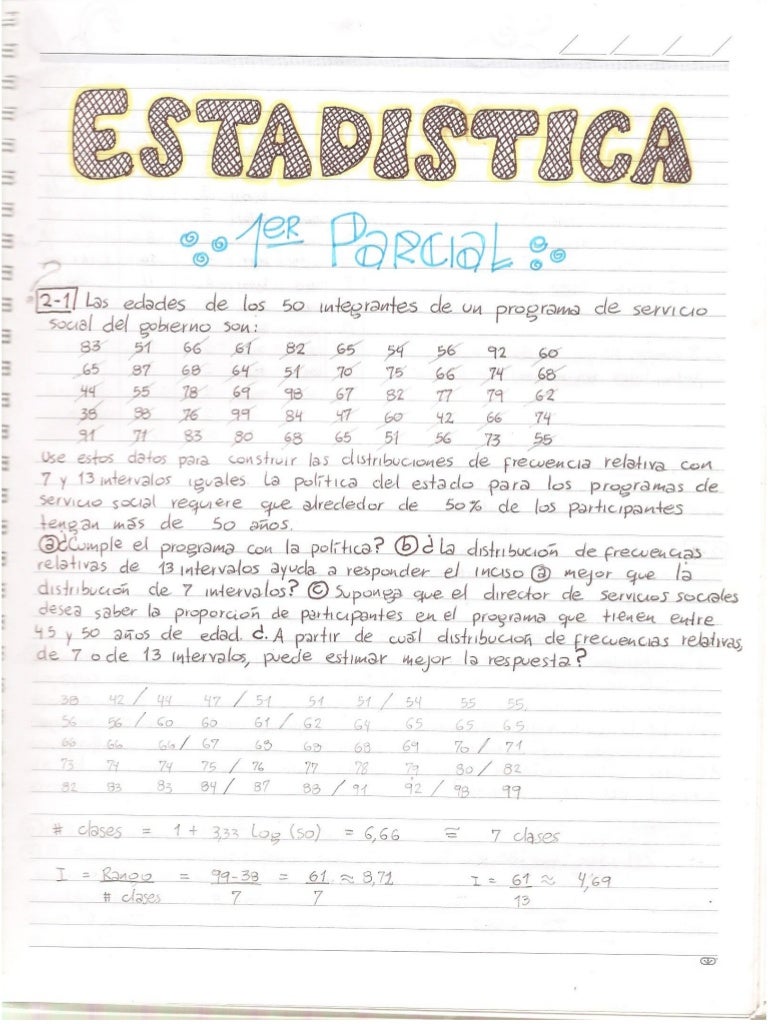 ESTADISTICA
1ER PARCIAL
2-1 Las edades de los 50 integrantes de un programa de servicio
social del gobierno son:
83 51 66 61 82 65 54 56 92 60
65 87 68 64 51 70 75 66 74 68
44 55 78 69 98 67 82 77 79 62
38 88 76 99 84 47 60 42 66 74
91 71 83 80 68 65 51 56 73 55
Use estos datos para construir las distribuciones de frecuencia relativa con
7 y 13 intervalos iguales La política del estado para los programas de
servicio social requiere que alrededor de 50% de los participantes
tengan más de 50 años.
ⓐ¿Cumple el programa con la política? ⓑ¿La distribución de frecuencias
relativas de 13 intervalos ayuda a responder el inciso ⓐ mejor que la
distribución de 7 intervalos? ⓒ Suponga que el director de servicios sociales
desea saber la proporción de participantes en el programa que tienen entre
45 y 50 años de edad. d. A partir de cuál distribución de frecuencias relativas,
de 7 o de 13 intervalos, puede estimar mejor la respuesta?
38 42 / 44 47 / 51 51 51 / 54 55 55
56 56 / 60 60 61 / 62 64 65 65 65
66 66 66 / 67 68 68 68 69 70 / 71
73 74 74 75 / 76 77 78 79 80 / 82
82 83 83 84 / 87 88 / 91 92 / 98 99
# clases = 1 + 3,33 Log (50) = 6,66 ≅ 7 clases
I = Rango / # clases = 99-38 / 7 = 61 / 7 ≈ 8,71 I = 61 / 13 ≈ 4,69